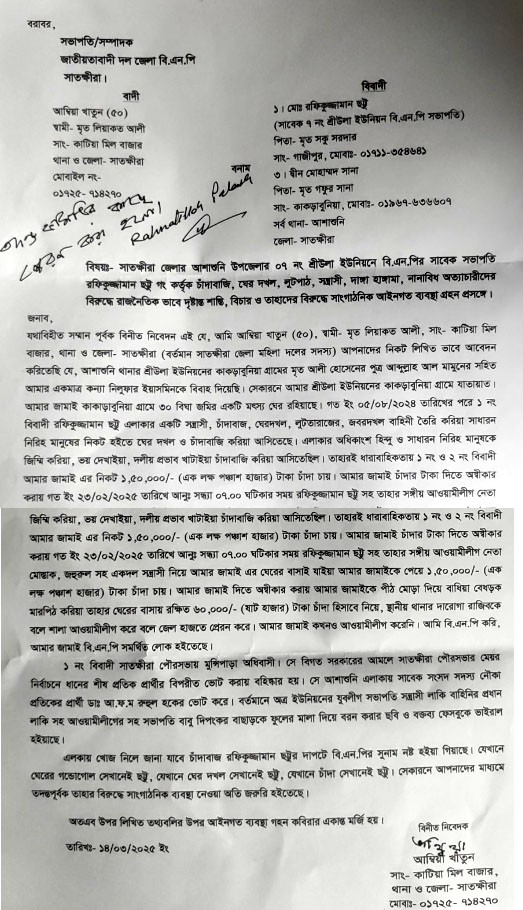 বরাবর,
সভাপতি/সম্পাদক
জাতীয়তাবাদী দল জেলা বি.এন.পি
সাতক্ষীরা।
বাদী
আম্বিয়া খাতুন (৫০)
স্বামী- মৃত লিয়াকত আলী
সাং- কাটিয়া মিল বাজার
থানা ও জেলা- সাতক্ষীরা
মোবাইল নং-
০১৭২৫- ৭১৪২৭০
বনাম
বিবাদী
১। মোঃ রফিকুজ্জামান ছট্টু
(সাবেক ৭ নং শ্রীউলা ইউনিয়ন বি.এন.পি সভাপতি)
পিতা- মৃত সকু সরদার
সাং- গাজীপুর, মোবাঃ- ০১৭১১-৩৫৪৬৪১
৩। দ্বীন মোহাম্মদ সানা
পিতা- মৃত গফুর সানা
সাং- কাকড়াবুনিয়া, মোবাঃ- ০১৯৬৭-৬৩৬৬০৭
সর্ব থানা- আশাশুনি
জেলা- সাতক্ষীরা
প্রেরন করা হলো।
Rahmatullah Palash
বিষয়ঃ- সাতক্ষীরা জেলার আশাশুনি উপজেলার ০৭ নং শ্রীউলা ইউনিয়নে বি.এন.পির সাবেক সভাপতি
রফিকুজ্জামান ছট্টু গং কর্তৃক চাঁদাবাজি, ঘের দখল, লুটপাঠ, সন্ত্রাসী, দাঙ্গা হাঙ্গামা, নানাবিধ অত্যাচারীদের
বিরুদ্ধে রাজনৈতিক ভাবে দৃষ্টান্ত শাস্তি, বিচার ও তাহাদের বিরুদ্ধে সাংগাঠনিক আইনগত ব্যবস্থা গ্রহন প্রসঙ্গে।
জনাব,
যথাবিহীত সম্মান পূর্বক বিনীত নিবেদন এই যে, আমি আম্বিয়া খাতুন (৫০), স্বামী- মৃত লিয়াকত আলী, সাং- কাটিয়া মিল
বাজার, থানা ও জেলা- সাতক্ষীরা (বর্তমান সাতক্ষীরা জেলা মহিলা দলের সদস্য) আপনাদের নিকট লিখিত ভাবে আবেদন
করিতেছি যে, আশাশুনি থানার শ্রীউলা ইউনিয়নের কাকড়াবুনিয়া গ্রামের মৃত আলী হোসেনের পুত্র আব্দুল্লাহ আল মামুনের সহিত
আমার একমাত্র কন্যা নিলুফার ইয়াসমিনকে বিবাহ দিয়েছি। সেকারনে আমার শ্রীউলা ইউনিয়নের কাকড়াবুনিয়া গ্রামে যাতায়াত।
আমার জামাই কাকাড়াবুনিয়া গ্রামে ৩০ বিঘা জমির একটি মৎস্য ঘের রহিয়াছে। গত ইং ০৫/০৮/২০২৪ তারিখের পরে ১ নং
বিবাদী রফিকুজ্জামান ছট্টু এলাকার একটি সন্ত্রাসী, চাঁদাবাজ, ঘেরদখল, লুটতারাজের, জবরদখল বাহিনী তৈরি করিয়া সাধারন
নিরিহ মানুষের নিকট হইতে ঘের দখল ও চাঁদাবাজি করিয়া আসিতেছে। এলাকার অধিকাংশ হিন্দু ও সাধারন নিরিহ মানুষকে
জিম্মি করিয়া, ভয় দেখাইয়া, দলীয় প্রভাব খাটাইয়া চাঁদাবাজি করিয়া আসিতেছিল। তাহারই ধারাবাহিকতায় ১ নং ও ২ নং বিবাদী
আমার জামাই এর নিকট ১,৫০,০০০/- (এক লক্ষ পঞ্চাশ হাজার) টাকা চাঁদা চায়। আমার জামাই চাঁদার টাকা দিতে অস্বীকার
করায় গত ইং ২৩/০২/২০২৫ তারিখে আনুঃ সন্ধ্যা ০৭.০০ ঘটিকার সময় রফিকুজ্জামান ছট্টু সহ তাহার সঙ্গীয় আওয়ামীলীগ নেতা
জিম্মি করিয়া, ভয় দেখাইয়া, দলীয় প্রভাব খাটাইয়া চাঁদাবাজি করিয়া আসিতেছিল। তাহারই ধারাবাহিকতায় ১ নং ও ২ নং বিবাদী
আমার জামাই এর নিকট ১,৫০,০০০/- (এক লক্ষ পঞ্চাশ হাজার) টাকা চাঁদা চায়। আমার জামাই চাঁদার টাকা দিতে অস্বীকার
করায় গত ইং ২৩/০২/২০২৫ তারিখে আনুঃ সন্ধ্যা ০৭.০০ ঘটিকার সময় রফিকুজ্জামান ছট্টু সহ তাহার সঙ্গীয় আওয়ামীলীগ নেতা
মোস্তাক, জহুরুল সহ একদল সন্ত্রাসী নিয়ে আমার জামাই এর ঘেরের বাসাই যাইয়া আমার জামাইকে পেয়ে ১,৫০,০০০/- (এক
লক্ষ পঞ্চাশ হাজার) টাকা চাঁদা চায়। আমার জামাই চাঁদা দিতে অস্বীকার করায় আমার জামাইকে পীঠ মোড়া দিয়ে বাধিয়া বেধড়ক
মারপিঠ করিয়া তাহার ঘেরের বাসায় রক্ষিত ৬০,০০০/- (ষাট হাজার) টাকা চাঁদা হিসাবে নিয়ে, স্থানীয় থানার দারোগা রাজিবকে
বলে শালা আওয়ামীলীগ করে বলে জেল হাজতে প্রেরন করে। আমার জামাই কখনও আওয়ামীলীগ করেনি। আমি বি.এন.পি করি,
আমার জামাই বি.এন.পি সমর্থিত লোক হইতেছে।
১ নং বিবাদী সাতক্ষীরা পৌরসভায় মুন্সিপাড়া অধিবাসী। সে বিগত সরকারের আমলে সাতক্ষীরা পৌরসভার মেয়র
নির্বাচনে ধানের শীষ প্রতিক প্রার্থীর বিপরীত ভোট করায় বহিষ্কার হয়। সে আশাশুনি এলাকায় সাবেক সংসদ সদস্য নৌকা
প্রতিকের প্রার্থী ডাঃ আ.ফ.ম রুহুল হকের ভোট করে। বর্তমানে অত্র ইউনিয়নের যুবলীগ সভাপতি সন্ত্রাসী লাকি বাহিনির প্রধান
লাকি সহ আওয়ামীলীগের সহ সভাপতি বাবু দিপংকর বাছাড়কে ফুলের মালা দিয়ে বরন করার ছবি ও বক্তব্য ফেসবুকে ভাইরাল
হইয়াছে।
এলাকায় খোজ নিলে জানা যাবে চাঁদাবাজ রফিকুজ্জামান ছট্টুর দাপটে বি.এন.পির সুনাম নষ্ট হইয়া গিয়াছে। যেখানে
ঘেরের গন্ডোগোল সেখানেই ছট্টু, যেখানে ঘের দখল সেখানেই ছট্টু, যেখানে চাঁদা সেখানেই ছট্টু। সেকারনে আপনাদের মাধ্যমে
তদন্তপূর্বক তাহার বিরুদ্ধে সাংগাঠনিক ব্যবস্থা নেওয়া অতি জরুরি হইতেছে।
অতএব উপর লিখিত তথ্যবলির উপর আইনগত ব্যবস্থা গহন কবিরার একান্ত মর্জি হয়।
তারিখঃ- ১৪/০৩/২০২৫ ইং
বিনীত নিবেদক
আম্বিয়া খাতুন
সাং- কাটিয়া মিল বাজার,
থানা ও জেলা- সাতক্ষীরা
মোবাঃ- ০১৭২৫- ৭১৪২৭০